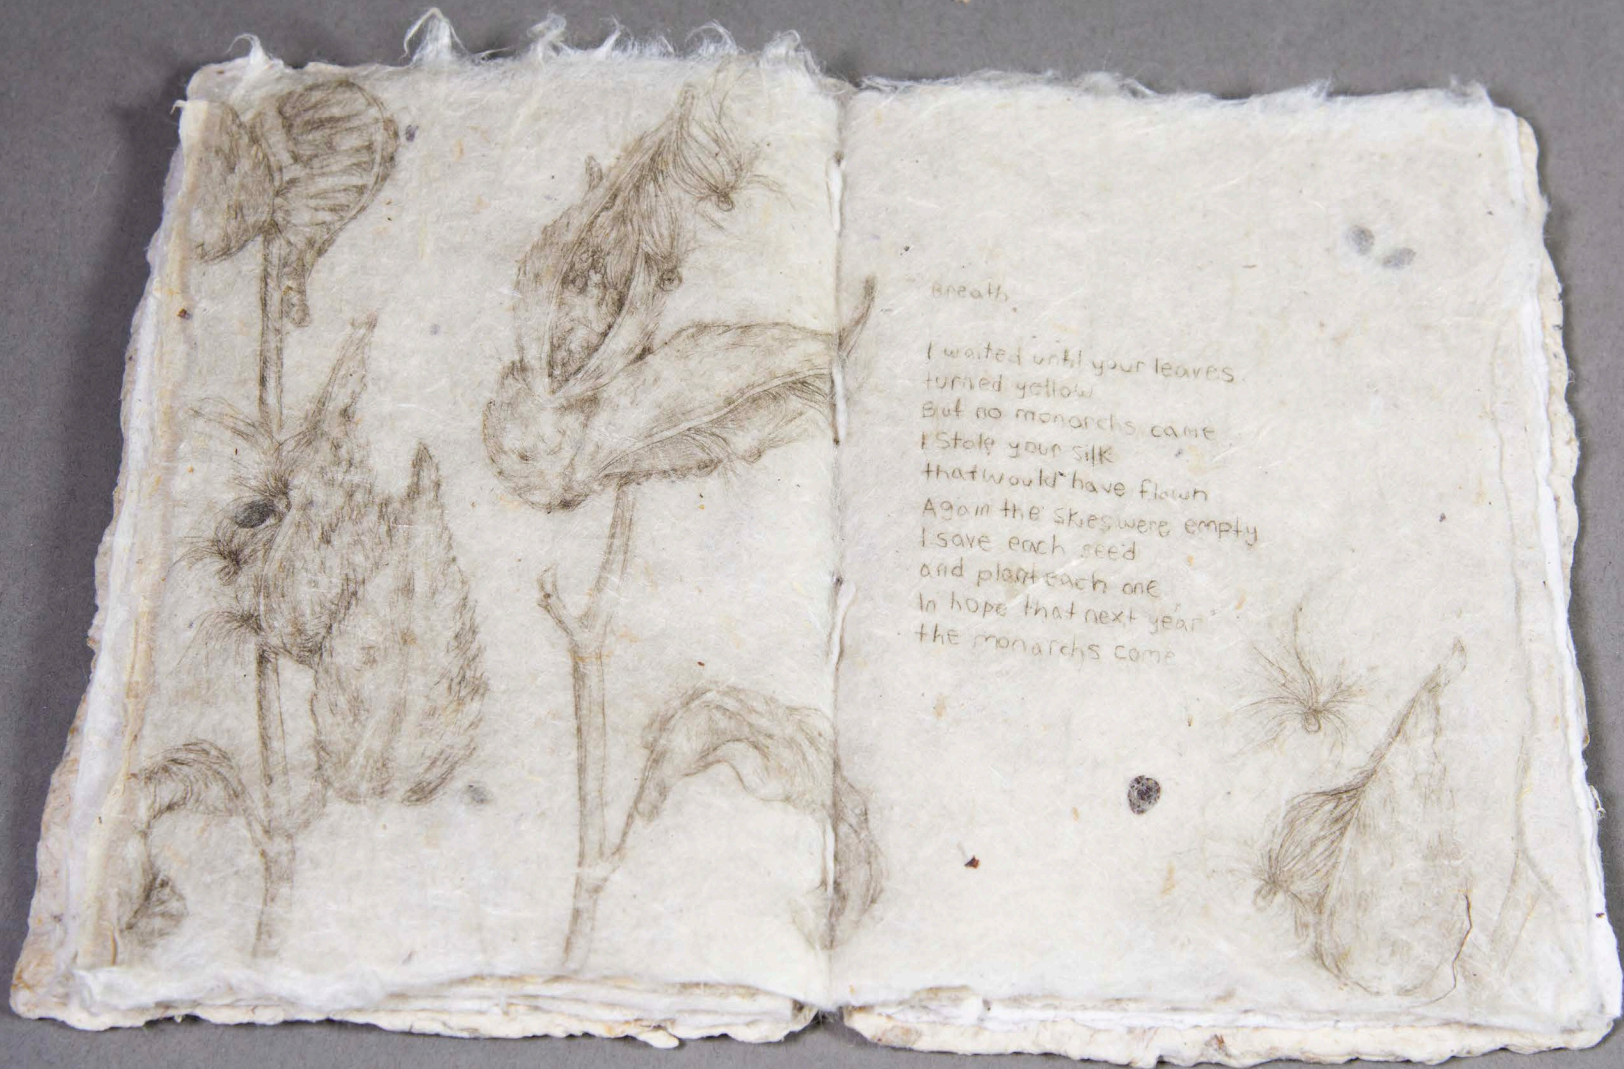 Breath
I waited until your leaves
turned yellow
But no monarchs came
I stole your silk
that would have flown
Again the skies were empty
I save each seed
and plant each one
In hope that next year
the monarchs come